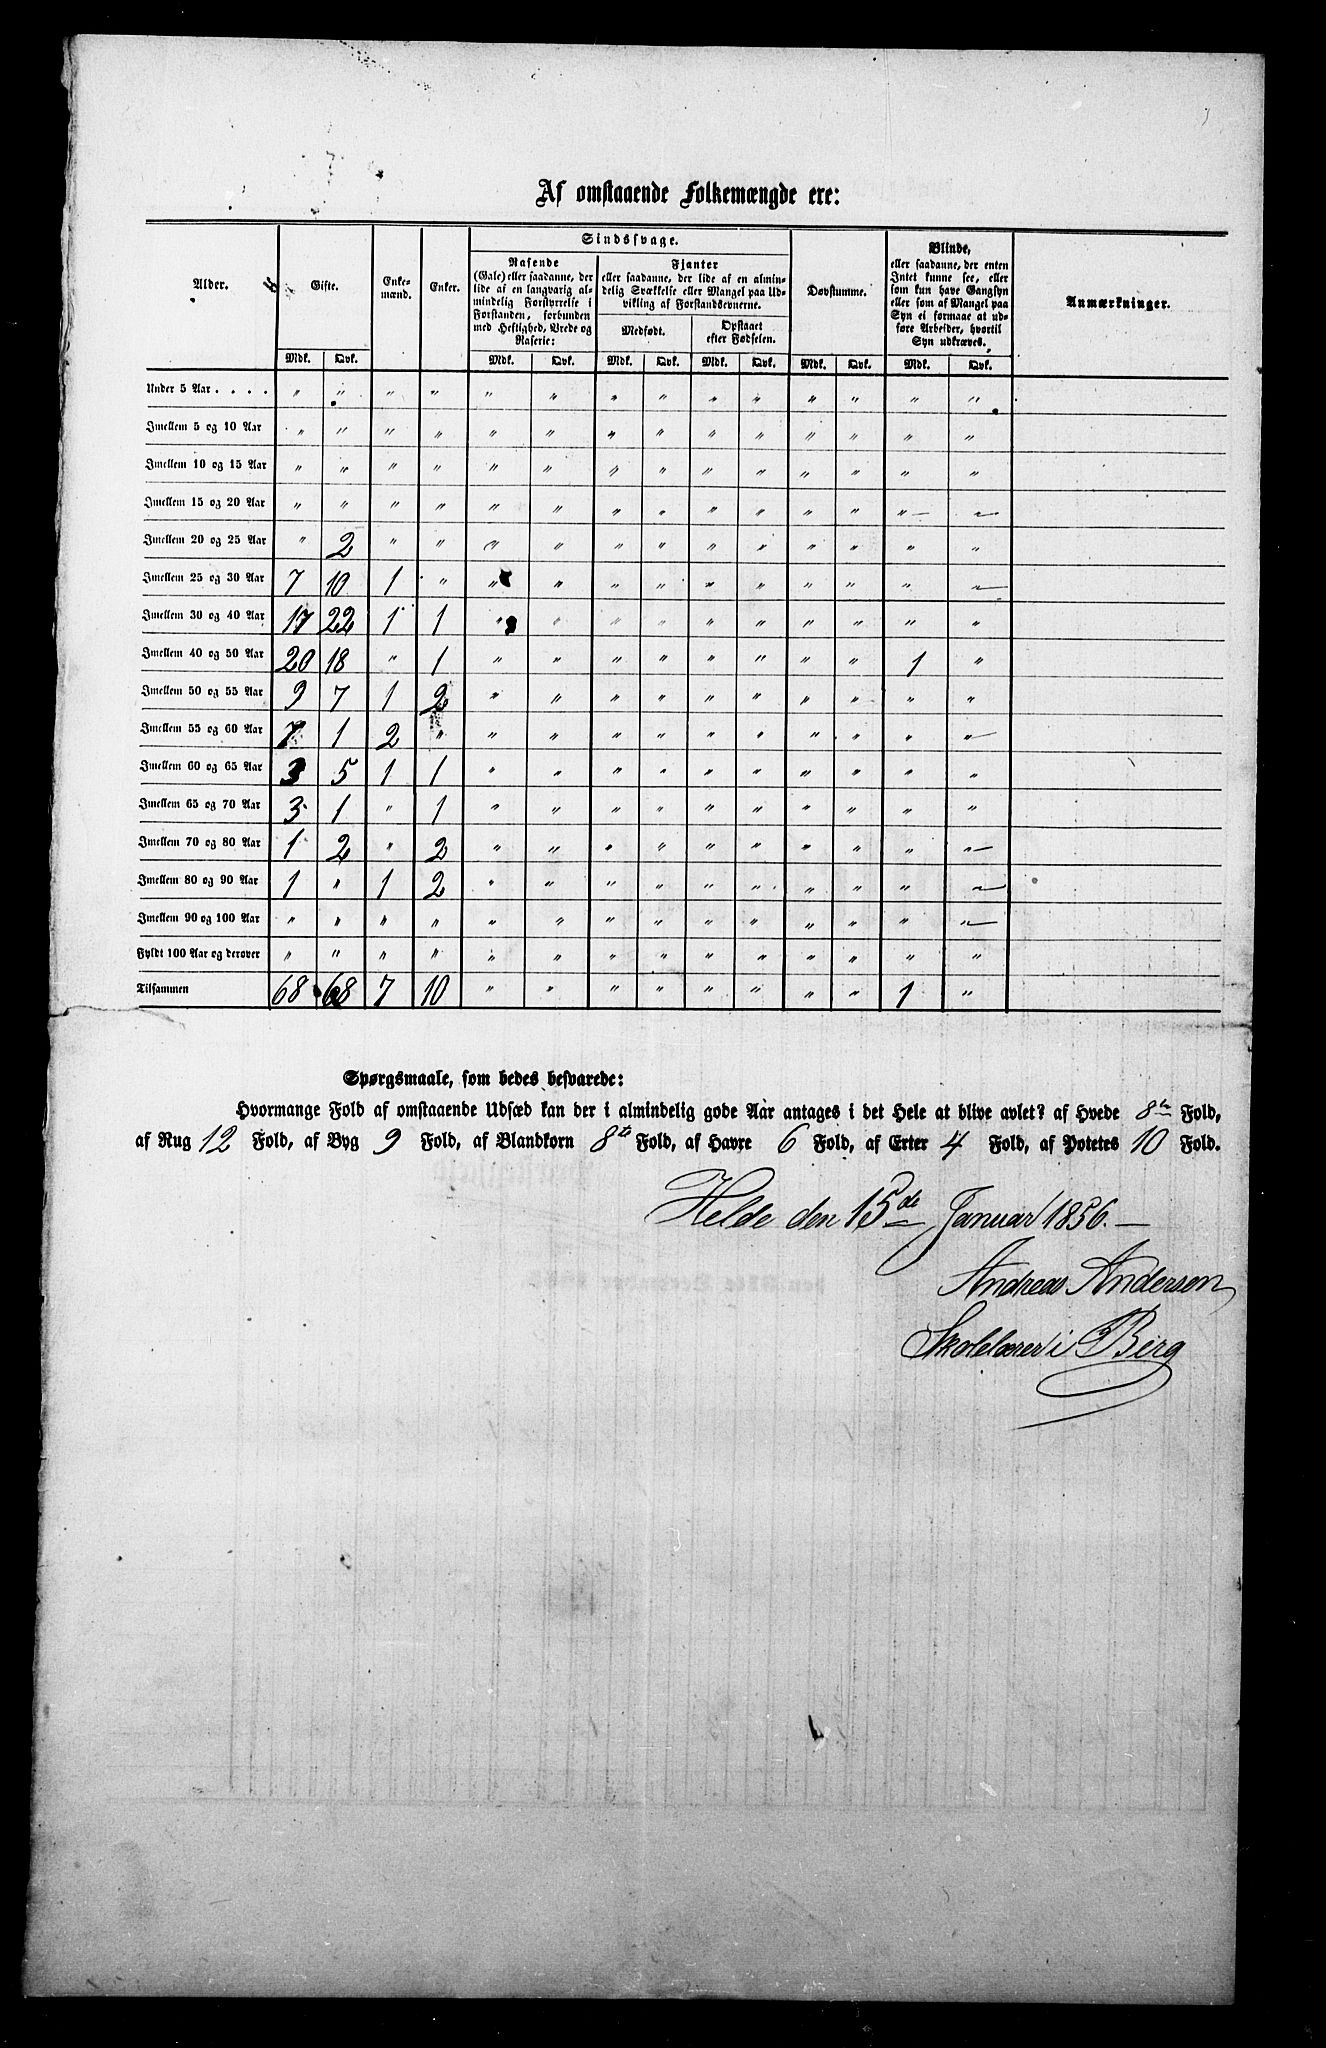 Af omstaaende Folkemængde ere:
Alder. Gifte. Enke-mænd. Enker. Sindssvage. Døvstumme. Blinde, Anmærkninger.
Rasende
(Gale) eller saadanne, der
lide af en langvarig al-
mindelig Forstyrrelse i
Forstanden, forbunden
med Heftighed, Vrede og
Raserie:
Fjanter
eller saadanne, der lide af en almin-
delig Svækkelse eller Mangel paa Ud-
vikling af Forstandsevnerne.
Medfødt. Opstaaet
efter Fødselen.
eller saadanne, der enten
Intet kunne see, eller
som kun have Gangsyn
eller som af Mangel paa
Syn ei formaae at ud-
føre Arbeider, hvortil
Syn udkræves.
Mdk. Qvk. Mdk. Qvk. Mdk. Qvk. Mdk. Qvk. Mdk. Qvk. Mdk. Qvk.
Under 5 Aar . . . . " " " " " " " " " " " " " "
Imellem 5 og 10 Aar " " " " " " " " " " " " " "
Imellem 10 og 15 Aar " " " " " " " " " " " " " "
Imellem 15 og 20 Aar " " " " " " " " " " " " " "
Imellem 20 og 25 Aar " 2 " " " " " " " " " " " "
Imellem 25 og 30 Aar 7 10 1 " " " " " " " " " " "
Imellem 30 og 40 Aar 17 22 1 1 " " " " " " " " " "
Imellem 40 og 50 Aar 20 18 " 1 " " " " " " " " 1 "
Imellem 50 og 55 Aar 9 7 1 2 " " " " " " " " " "
Imellem 55 og 60 Aar 7 1 2 " " " " " " " " " " "
Imellem 60 og 65 Aar 3 5 1 1 " " " " " " " " " "
Imellem 65 og 70 Aar 3 1 " 1 " " " " " " " " " "
Imellem 70 og 80 Aar 1 2 " 2 " " " " " " " " " "
Imellem 80 og 90 Aar 1 " 1 2 " " " " " " " " " "
Imellem 90 og 100 Aar " " " " " " " " " " " " " "
Fyldt 100 Aar og derover " " " " " " " " " " " " " "
Tilsammen 68 68 7 10 " " " " " " " " 1 "
Spørgsmaale, som bedes besvarede:
Hvormange Fold af omstaaende Udsæd kan der i almindelig gode Aar antages i det Hele at blive avlet? af Hvede 8te Fold,
af Rug 12 Fold, af Byg 9 Fold, af Blandkorn 8te Fold, af Havre 6 Fold, af Erter 4 Fold, af Potetes 10 Fold.
Helde den 15de Januar 1856.
Andreas Andersen
Skolelærer i Berg